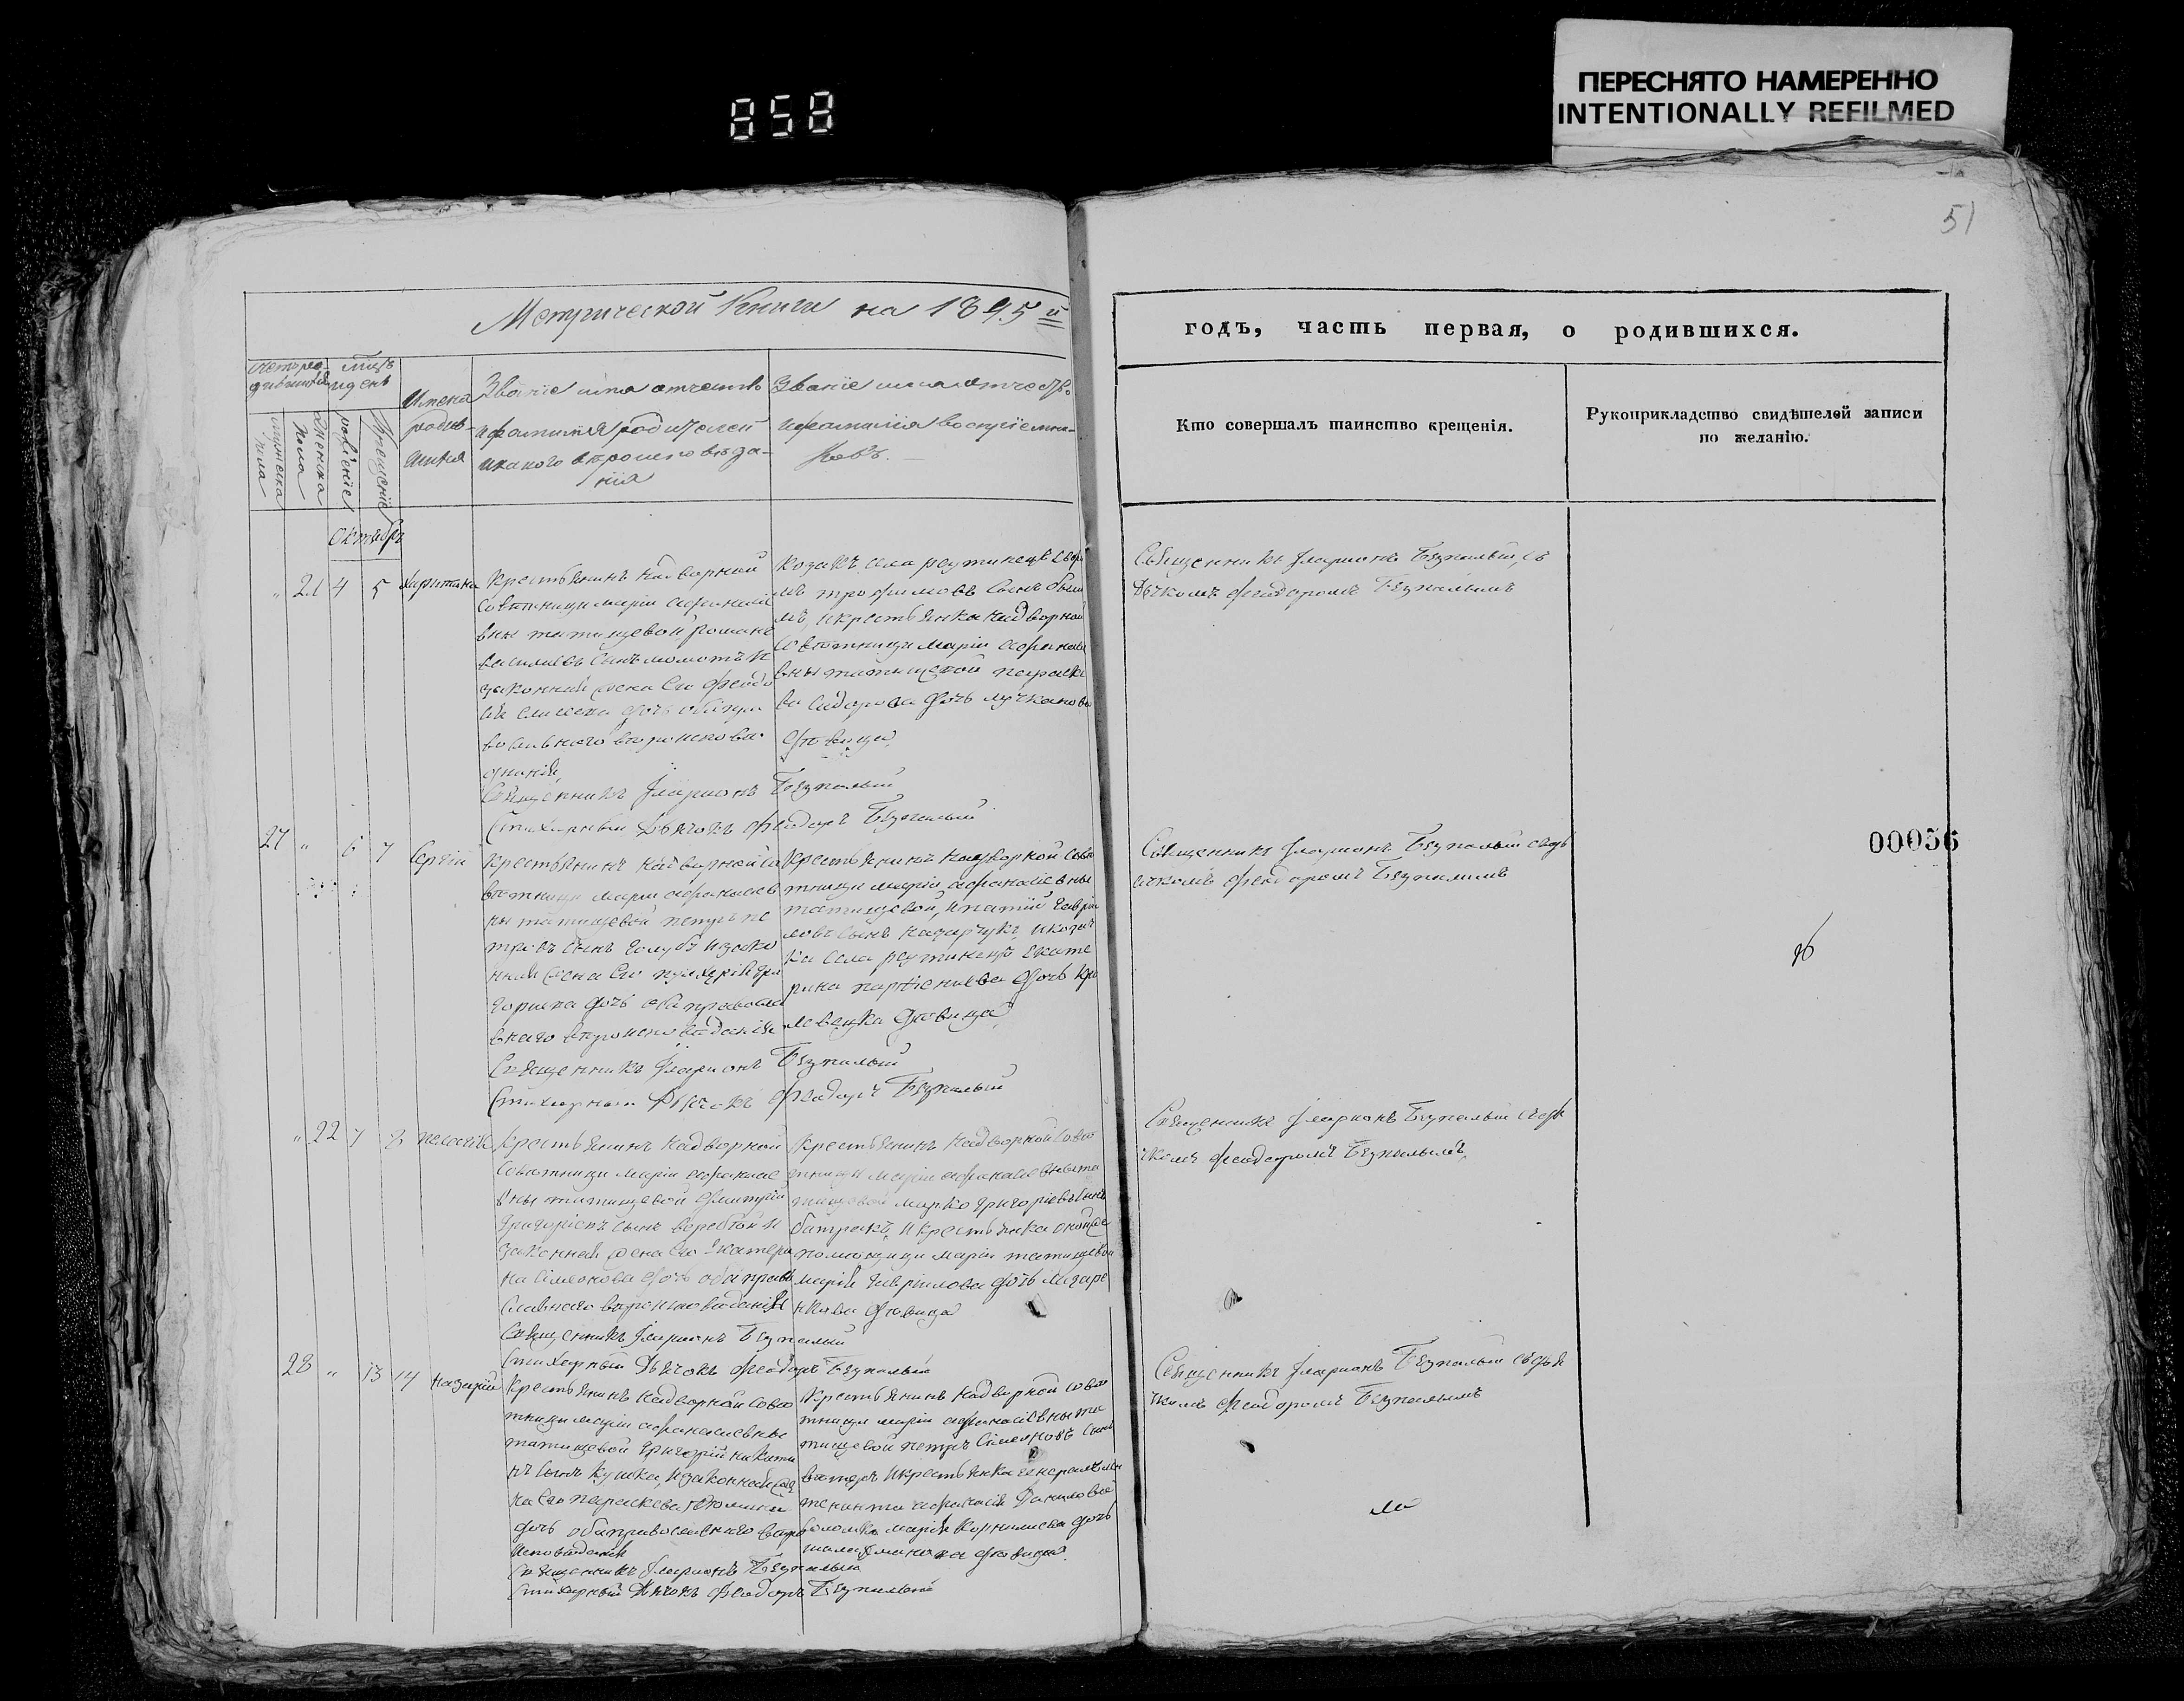 858
ПЕРЕСНЯТО НАМЕРЕННО
INTENTIONALLY REFILMED
51
Метрической Книги на 1845 й
годъ, часть первая, о родившихся.
Имена
родив-
шихся
Званіе имя отчество
и фамилія родителей
и какого вѣроисповѣда-
нія
Званіе имя отчест.
и фамилія воспріемни-
ковъ.
мужеска
пола
женска
пола
рожденіе
крещеніе
Кто совершалъ таинство крещенія.
Рукоприкладство свидѣтелей записи
по желанію.
Октябрь
21 4 5 Харитина
Крестьянинъ надворной
совѣтницы маріи афанасіе
вны татищевой романъ
василіевъ сынъ и
законная жена его феодо
дочь оба
вославнаго вѣроисповѣ
данія
Священникъ Іларіонъ Безпалый
Стихарный Дьячокъ Феодоръ Безпалый
Козакъ села реутинецъ
трофимовъ сынъ
и крестьянка надворной
совѣтницы маріи афанасіе
вны татищевой параске
ва сидорова дочь
дѣвица
Священникъ Іларіонъ Безпалый, съ
Дьячкомъ Феодоромъ Безпалымъ
27 " 6 7 Сергій
Крестьянинъ надворной со
вѣтницы маріи афанасіев
ны татищевой петръ пе
тровъ сынъ голубъ и зако
нная жена его гри
горіева дочь оба правосла
внаго вѣроисповѣданія
Священникъ Іларіонъ Безпалый
Стихарный Дьячокъ Феодоръ Безпалый
Крестьянинъ надворной совѣ
тницы маріи афанасіевны
татищевой, игнатій гаврі
ловъ сынъ назарчукъ, и козач
ка села реутинецъ екате
рина дочь
дѣвица
Священникъ Іларіонъ Безпалый съ дь
ячкомъ Феодоромъ Безпалымъ
00056
" 22 7 8 пелагія
Крестьянинъ надворной
совѣтницы маріи афанасіе
вны татищевой димитрій
григоріевъ сынъ и
законная жена его екатери
на сімеонова дочь оба право
славнаго вѣроисповѣданія
Священникъ Іларіонъ Безпалый
Стихарный Дьячокъ Феодоръ Безпалый
Крестьянинъ надворной совѣ
тницы маріи афанасіевны та
тищевой марко григоріевъ сынъ
и крестьянка
помѣщицы маріи татищевой
марія гаврілова дочь
дѣвица
Священникъ Іларіонъ Безпалый съ дья
чкомъ Феодоромъ Безпалымъ
28 " 13 14 Назарій
Крестьянинъ надворной совѣ
тницы маріи афанасіевны
татищевой григорій никити
нъ сынъ и законная же
на его параскева
дочь оба православнаго вѣро
исповѣданія
Священникъ Іларіонъ Безпалый
Стихарный Дьячокъ Феодоръ Безпалый
Крестьянинъ надворной совѣ
тницы маріи афанасіевны та
тищевой петръ сімеоновъ сынъ
и крестьянка генералъ
марія дочь
дѣвица
Священникъ Іларіонъ Безпалый съ дья
чкомъ Феодоромъ Безпалымъ